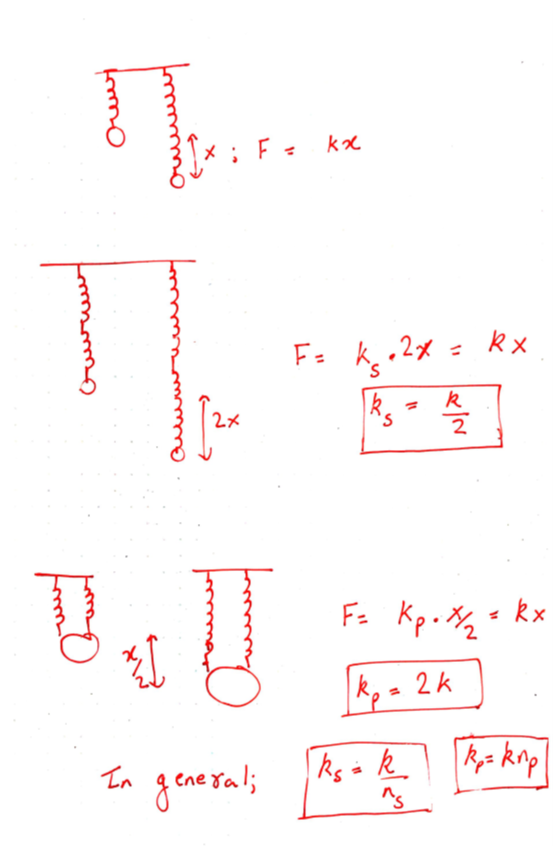 x ; F = kx
F = k_s · 2x = kx
k_s = k/2
2x
F = k_p · x/2 = kx
x/2
k_p = 2k
In general; k_s = k/n_s k_p = kn_p